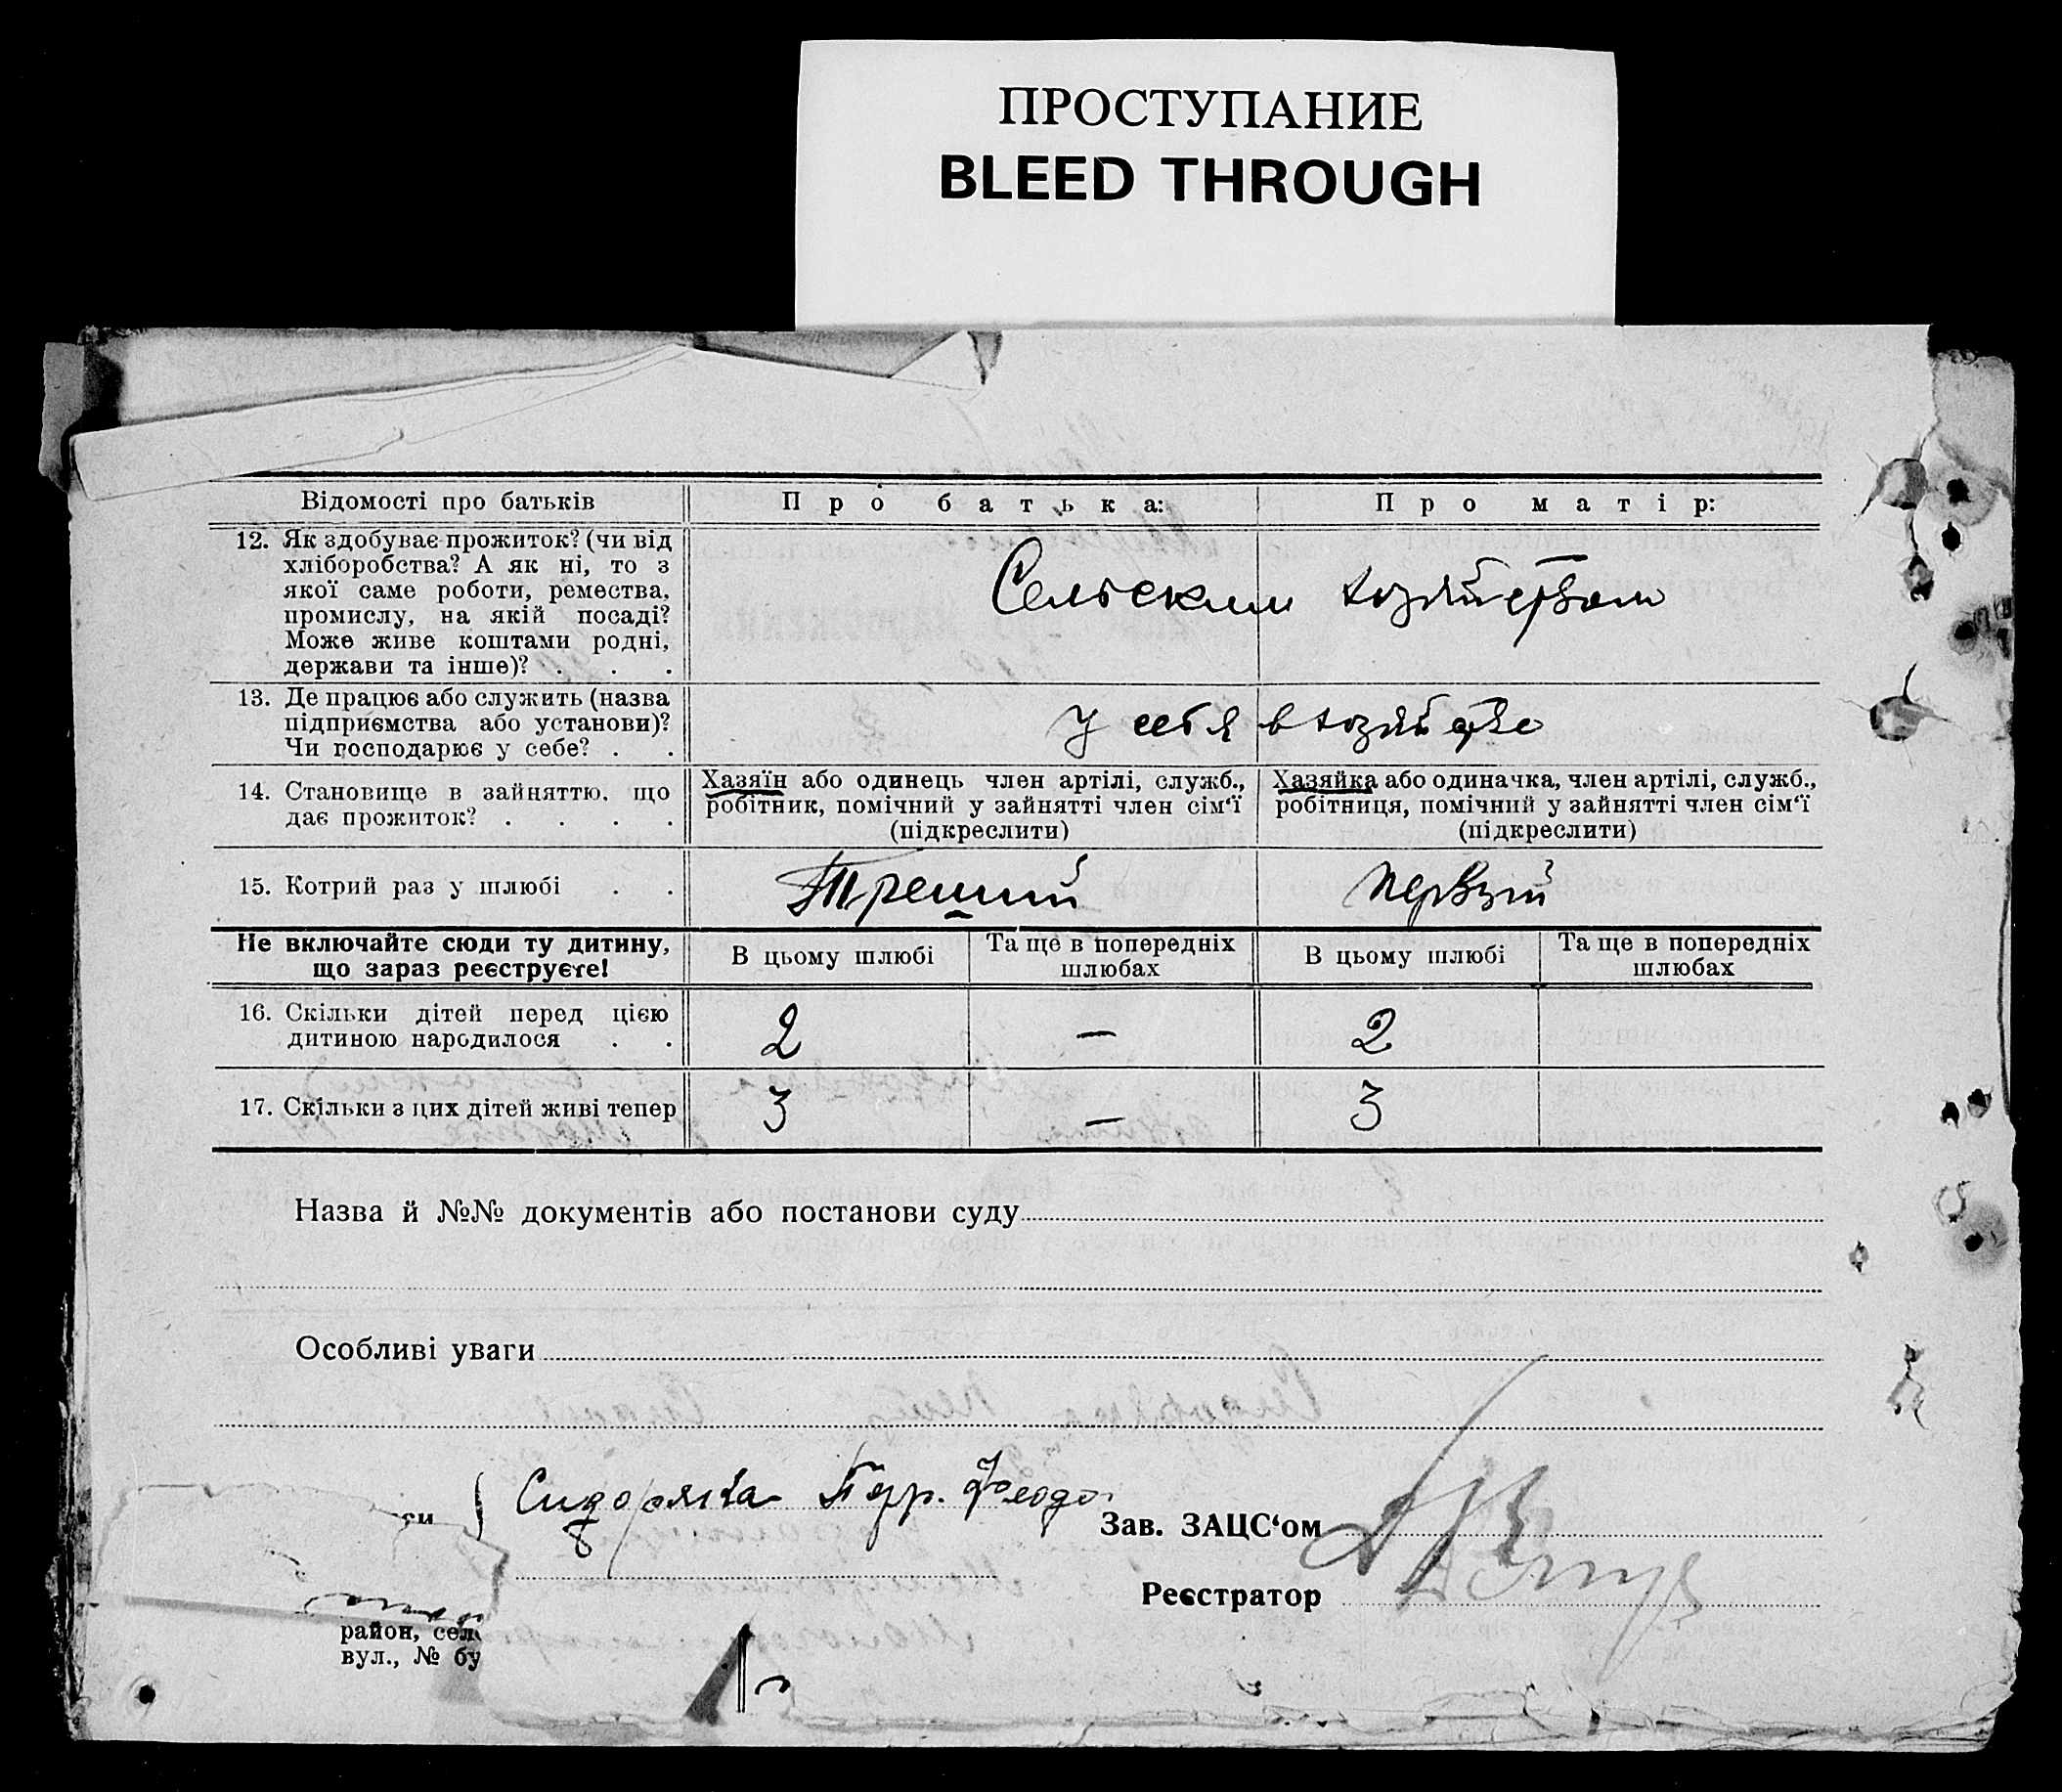 ПРОСТУПАНИЕ
BLEED THROUGH
Відомості про батьків
Про батька:
Про матір:
12. Як здобуває прожиток? (чи від
хліборобства? А як ні, то з
якої саме роботи, ремества,
промислу, на якій посаді?
Може живе коштами родні,
держави та інше)? . . .
Сельским хозяйством
13. Де працює або служить (назва
підприємства або установи)?
Чи господарює у себе? . .
У себя в хозяйстве
14. Становище в зайняттю, що
дає прожиток? . . . .
Хазяїн або одинець член артілі, служб.,
робітник, помічний у зайнятті член сім‘ї
(підкреслити)
Хазяйка або одиначка, член артілі, служб.,
робітниця, помічний у зайнятті член сім‘ї
(підкреслити)
15. Котрий раз у шлюбі . .
Третий
первый
Не включайте сюди ту дитину,
що зараз реєструєте!
В цьому шлюбі
Та ще в попередніх
шлюбах
В цьому шлюбі
Та ще в попередніх
шлюбах
16. Скільки дітей перед цією
дитиною народилося . .
2
—
2
17. Скільки з цих дітей живі тепер
3
—
3
Назва й №№ документів або постанови суду
Особливі уваги
Зав. ЗАЦС‘ом
Реєстратор
район, сел
вул., № бу